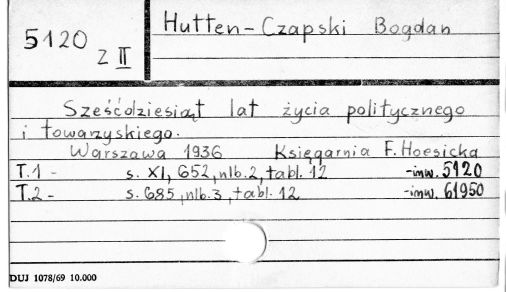 5120
Z II
Hutten-Czapski Bogdan
Sześćdziesiąt lat życia politycznego
i towarzyskiego.
Warszawa 1936 Księgarnia F. Hoesicka
T.1 - s. XI, 652, nlb. 2, tabl. 12 -inw. 5120
T.2 - s. 685, nlb. 3, tabl. 12 -inw. 61950
DUJ 1078/69 10.000